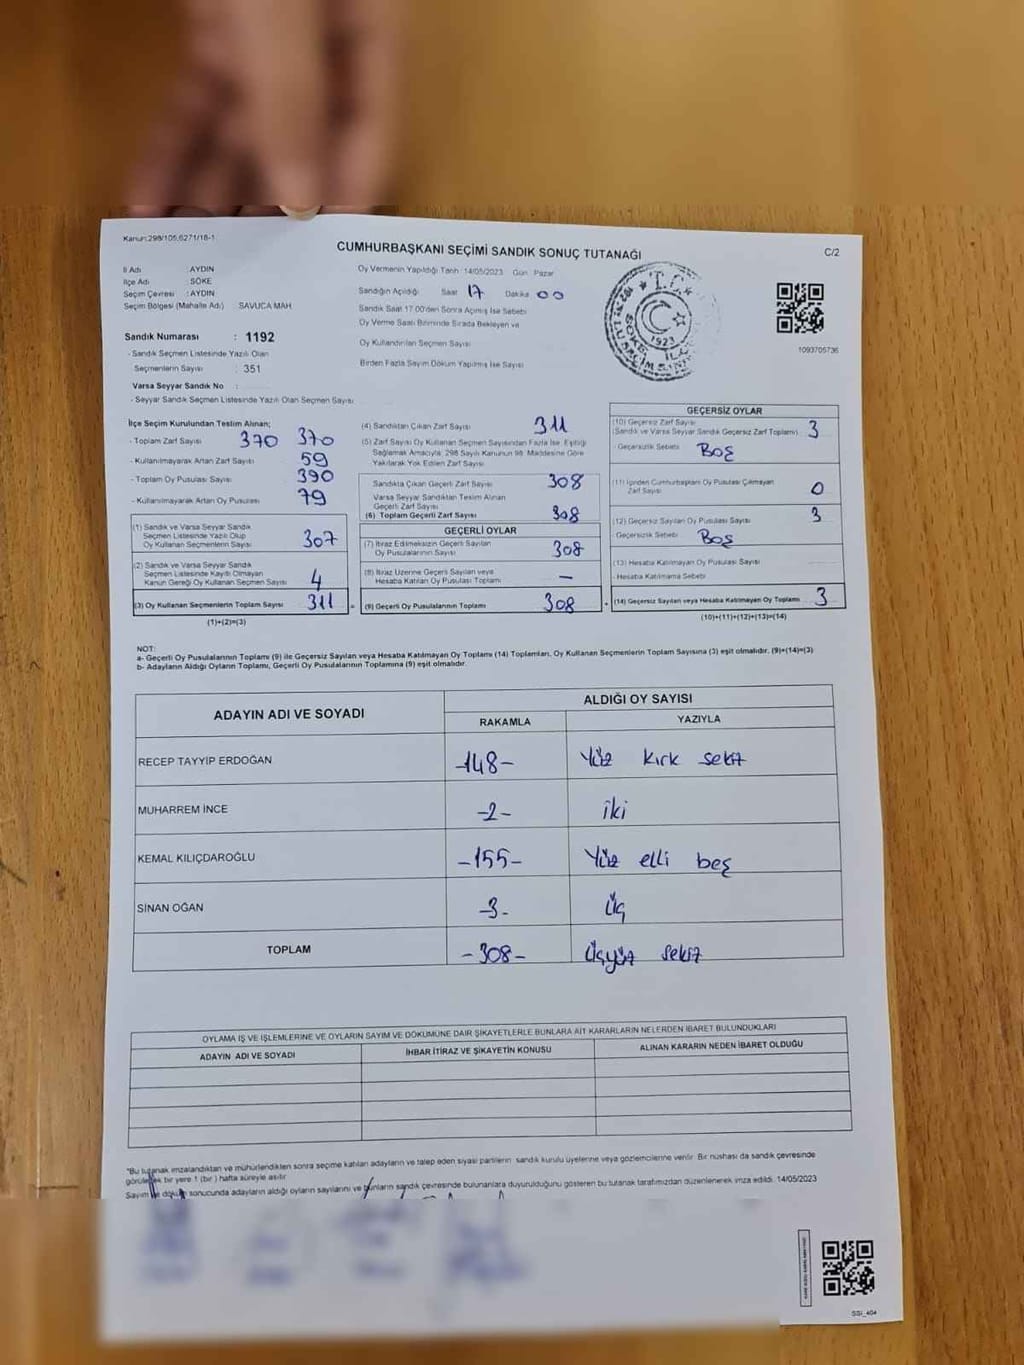 Kanun:298/105,6271/18-1
CUMHURBAŞKANI SEÇİMİ SANDIK SONUÇ TUTANAĞI
C/2
İl Adı : AYDIN
İlçe Adı : SÖKE
Seçim Çevresi : AYDIN
Seçim Bölgesi (Mahalle Adı) : SAVUCA MAH.
Oy Vermenin Yapıldığı Tarih :14/05/2023 Gün: Pazar
Sandığın Açıldığı: Saat 17 Dakika 00
Sandık Saat 17.00'den Sonra Açılmış İse Sebebi
Oy Verme Saati Bitiminde Sırada Bekleyen ve
Oy Kullandırılan Seçmen Sayısı
Birden Fazla Sayım Döküm Yapılmış İse Sayısı
T.C.
1923
1093705736
Sandık Numarası : 1192
- Sandık Seçmen Listesinde Yazılı Olan
Seçmenlerin Sayısı : 351
Varsa Seyyar Sandık No :
- Seyyar Sandık Seçmen Listesinde Yazılı Olan Seçmen Sayısı
İlçe Seçim Kurulundan Teslim Alınan;
- Toplam Zarf Sayısı 370 370
- Kullanılmayarak Artan Zarf Sayısı 59
- Toplam Oy Pusulası Sayısı 390
- Kullanılmayarak Artan Oy Pusulası 79
(1) Sandık ve Varsa Seyyar Sandık
Seçmen Listesinde Yazılı Olup
Oy Kullanan Seçmenlerin Sayısı 307
(2) Sandık ve Varsa Seyyar Sandık
Seçmen Listesinde Kayıtlı Olmayan
Kanun Gereği Oy Kullanan Seçmen Sayısı 4
(3) Oy Kullanan Seçmenlerin Toplam Sayısı 311
(1)+(2)=(3)
(4) Sandıktan Çıkan Zarf Sayısı 311
(5) Zarf Sayısı Oy Kullanan Seçmen Sayısından Fazla İse, Eşitliği
Sağlamak Amacıyla; 298 Sayılı Kanunun 98. Maddesine Göre
Yakılarak Yok Edilen Zarf Sayısı
Sandıkta Çıkan Geçerli Zarf Sayısı 308
Varsa Seyyar Sandıktan Teslim Alınan
Geçerli Zarf Sayısı
(6) Toplam Geçerli Zarf Sayısı 308
GEÇERLİ OYLAR
(7) İtiraz Edilmeksizin Geçerli Sayılan
Oy Pusulalarının Sayısı 308
(8) İtiraz Üzerine Geçerli Sayılan veya
Hesaba Katılan Oy Pusulası Toplamı —
(9) Geçerli Oy Pusulalarının Toplamı 308
GEÇERSİZ OYLAR
(10) Geçersiz Zarf Sayısı
(Sandık ve Varsa Seyyar Sandık Geçersiz Zarf Toplamı) 3
- Geçersizlik Sebebi : Boş
(11) İçinden Cumhurbaşkanı Oy Pusulası Çıkmayan
Zarf Sayısı 0
(12) Geçersiz Sayılan Oy Pusulası Sayısı 3
- Geçersizlik Sebebi : Boş
(13) Hesaba Katılmayan Oy Pusulası Sayısı
- Hesaba Katılmama Sebebi
(14) Geçersiz Sayılan veya Hesaba Katılmayan Oy Toplamı 3
(10)+(11)+(12)+(13)=(14)
NOT:
a- Geçerli Oy Pusulalarının Toplamı (9) ile Geçersiz Sayılan veya Hesaba Katılmayan Oy Toplamı (14) Toplamları, Oy Kullanan Seçmenlerin Toplam Sayısına (3) eşit olmalıdır. (9)+(14)=(3)
b- Adayların Aldığı Oyların Toplamı, Geçerli Oy Pusulalarının Toplamına (9) eşit olmalıdır.
ADAYIN ADI VE SOYADI ALDIĞI OY SAYISI
RAKAMLA YAZIYLA
RECEP TAYYİP ERDOĞAN -148- Yüz kırk sekiz
MUHARREM İNCE -2- iki
KEMAL KILIÇDAROĞLU -155- Yüz elli beş
SİNAN OĞAN -3- Üç
TOPLAM -308- Üçyüz sekiz
OYLAMA İŞ VE İŞLEMLERİNE VE OYLARIN SAYIM VE DÖKÜMÜNE DAİR ŞİKAYETLERLE BUNLARA AİT KARARLARIN NELERDEN İBARET BULUNDUKLARI
ADAYIN ADI VE SOYADI İHBAR İTİRAZ VE ŞİKAYETİN KONUSU ALINAN KARARIN NEDEN İBARET OLDUĞU
*Bu tutanak imzalandıktan ve mühürlendikten sonra seçime katılan adayların ve talep eden siyasi partilerin sandık kurulu üyelerine veya gözlemcilerine verilir. Bir nüshası da sandık çevresinde
görülecek bir yere 1 (bir) hafta süreyle asılır.
Sayım ve döküm sonucunda adayların aldığı oyların sayılarını ve bunların sandık çevresinde bulunanlara duyurulduğunu gösteren bu tutanak tarafımızdan düzenlenerek imza edildi. 14/05/2023
SSI_404